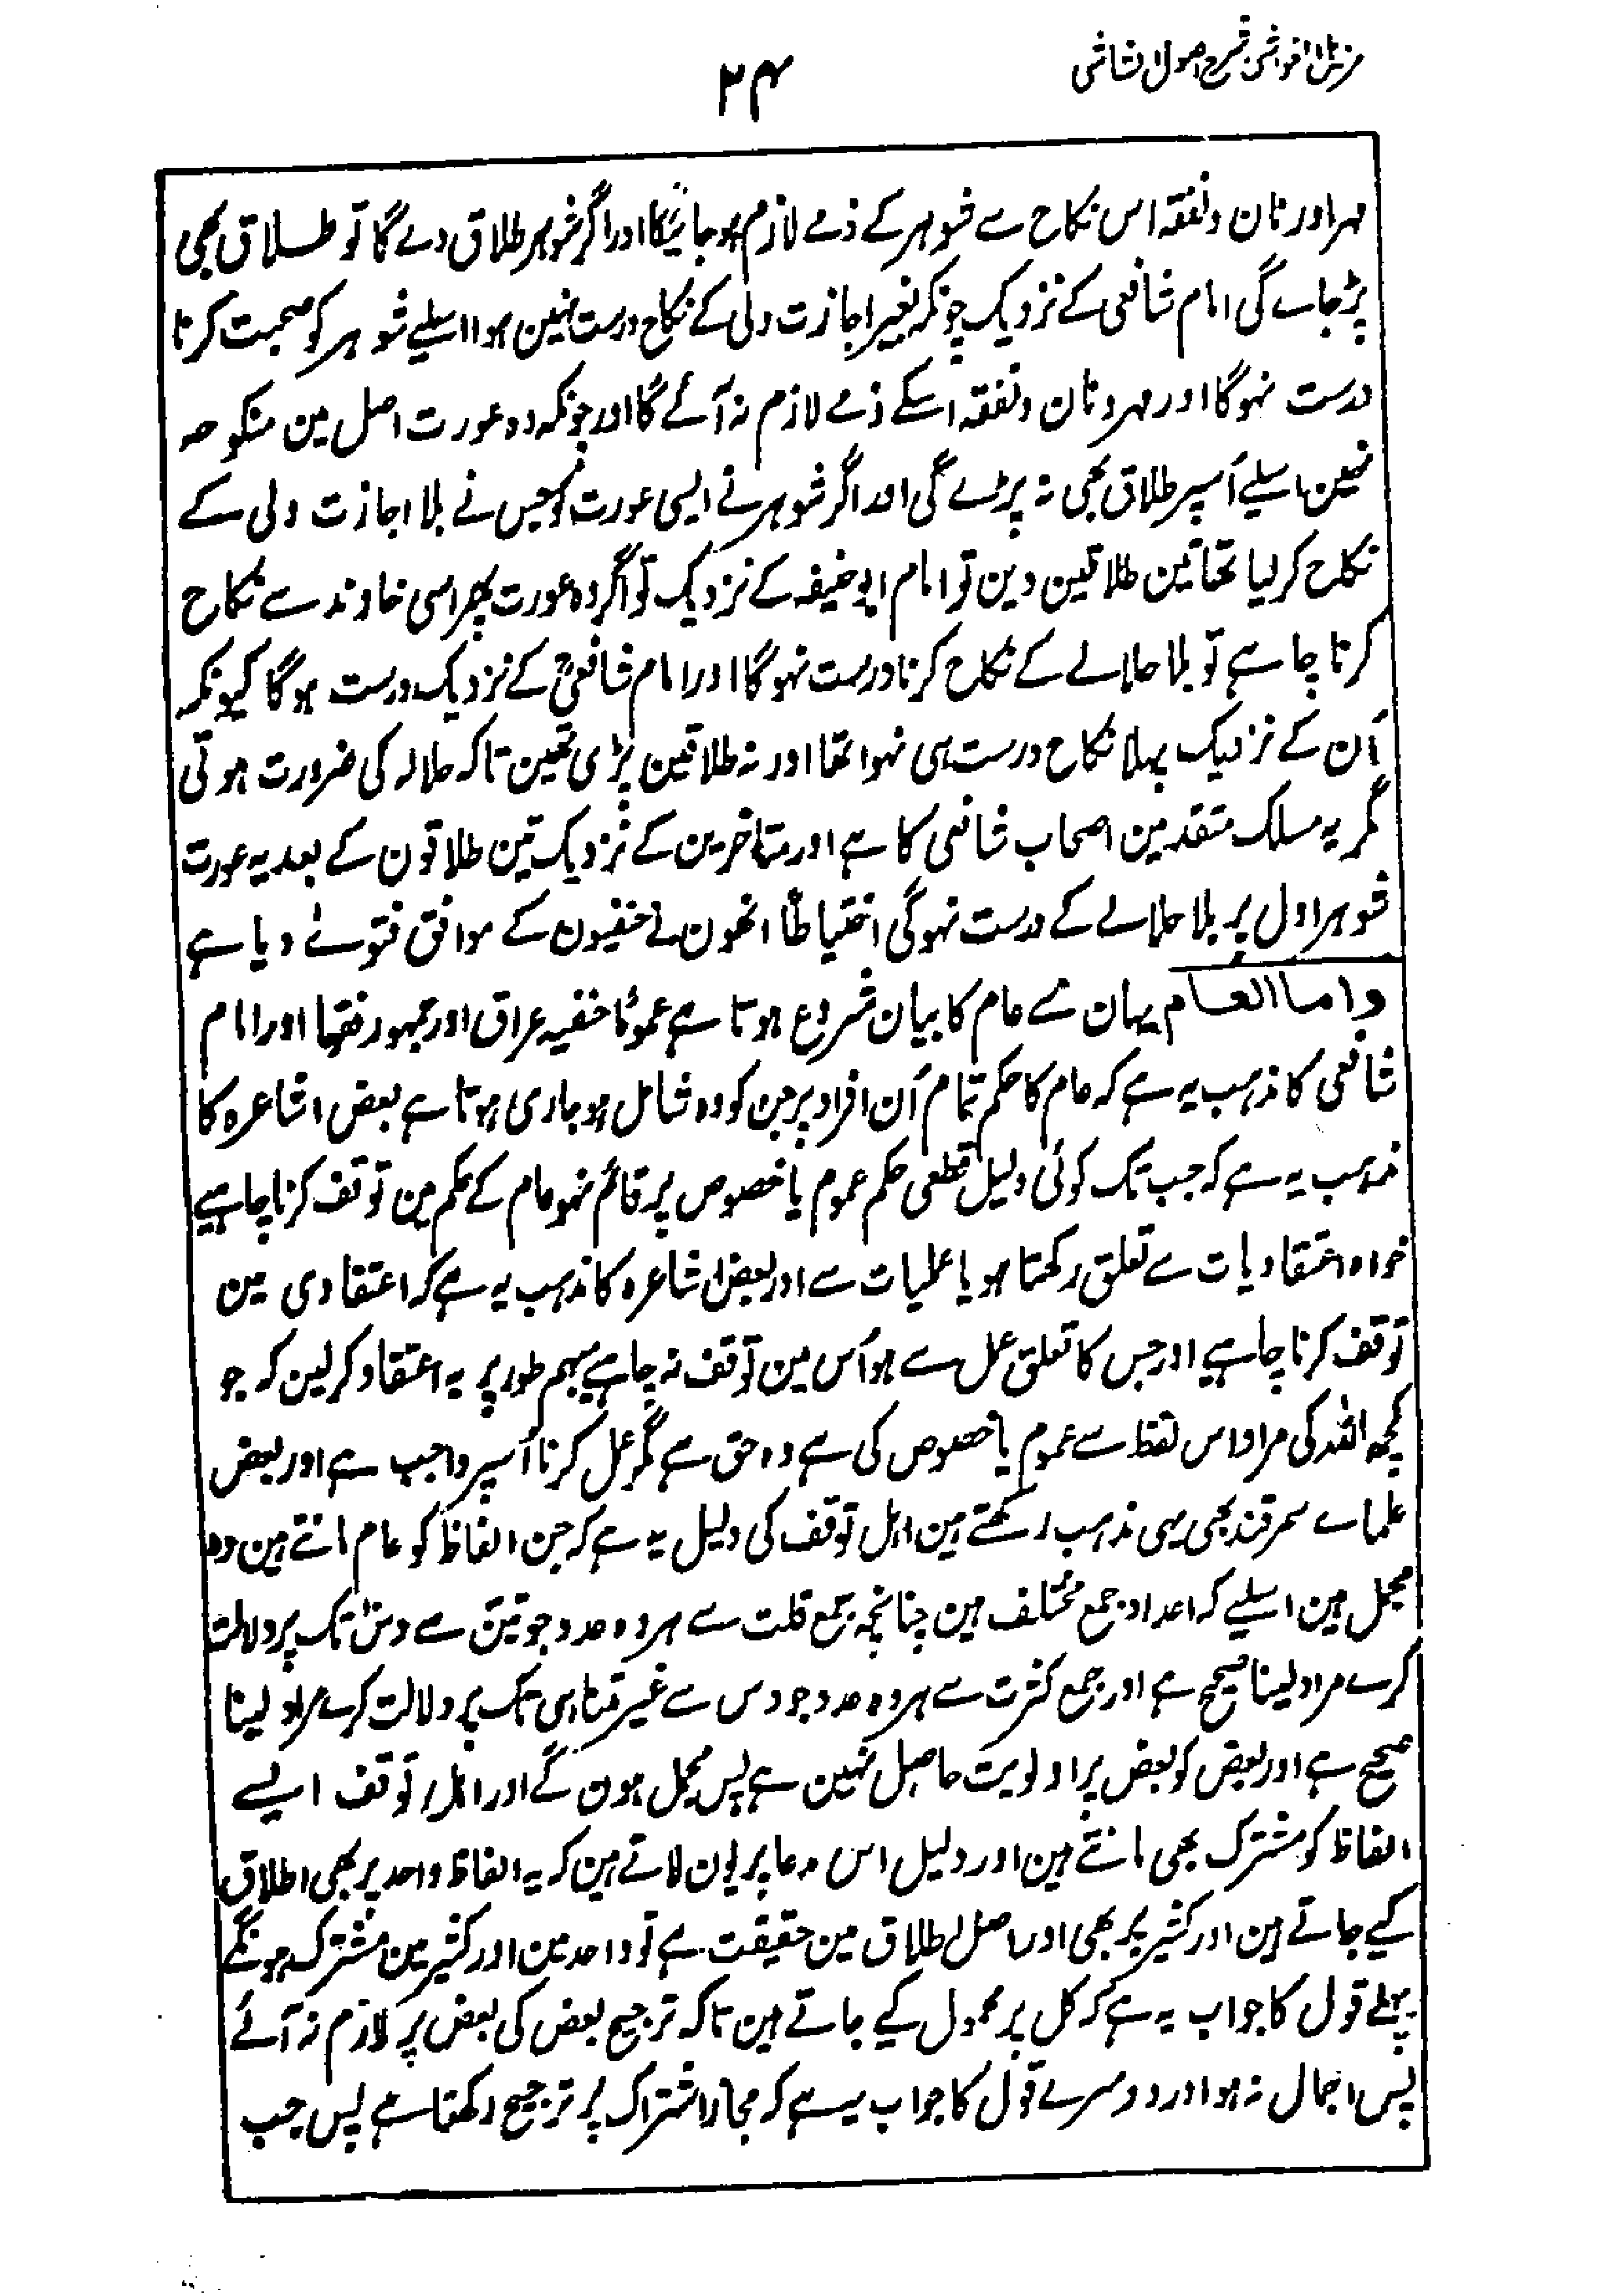 مزیل الغواشی شرح اصول الشاشی
۲۴
مہر اور نان ونفقہ اس نکاح سے شوہر کے ذمے لازم ہوجائیگا اور اگر شوہر طلاق دے گا تو طلاق بھی
پڑجاے گی امام شافعی کے نزدیک چونکہ بغیر اجازت ولی کے نکاح درست نہین ہوا اسلیے شوہر کو صحبت کرنا
درست نہوگا اور مہر ونان ونفقہ اسکے ذمے لازم نہ آئے گا اور چونکہ وہ عورت اصل مین منکوحہ
نہین اسلیے اُسپر طلاق بھی نہ پڑے گی اور اگر شوہر نے ایسی عورت کو جس نے بلا اجازت ولی کے
نکاح کرلیا تھا تین طلاقین دین تو امام ابو حنیفہ کے نزدیک تو اگر وہ عورت پھر اسی خاوند سے نکاح
کرنا چاہے تو بلا حلالے کے نکاح کرنا درست نہوگا اور امام شافعیؒ کے نزدیک درست ہوگا کیونکہ
اُن کے نزدیک پہلا نکاح درست ہی نہوا تھا اور نہ طلاقین پڑی تھین تاکہ حلالہ کی ضرورت ہوتی
مگر یہ مسلک متقدمین اصحاب شافعی کا ہے اور متاخرین کے نزدیک تین طلاقون کے بعد یہ عورت
شوہر اول پر بلا حلالے کے درست نہوگی احتیاطاً انھون نے حنفیون کے موافق فتوےٰ دیا ہے
واما العام یہان سے عام کا بیان شروع ہوتا ہے عموماً حنفیہ عراق اور جمہور فقہا اور امام
شافعی کا مذہب یہ ہے کہ عام کا حکم تمام اُن افراد پر جن کو وہ شامل ہو جاری ہوتا ہے بعض اشاعرہ کا
مذہب یہ ہے کہ جب تک کوئی دلیل قطعی حکم عموم یا خصوص پر قائم نہو عام کے حکم مین توقف کرنا چاہیے
خواہ اعتقادیات سے تعلق رکھتا ہو یا عملیات سے اور بعض اشاعرہ کا مذہب یہ ہے کہ اعتقادی مین
توقف کرنا چاہیے اور جس کا تعلق عمل سے ہو اُس مین توقف نہ چاہیے مبہم طور پر یہ اعتقاد کرلین کہ جو
کچھ اللہ کی مراد اس لفظ سے عموم یا خصوص کی ہے وہ حق ہے مگر عمل کرنا اُسپر واجب ہے اور بعض
علماے سمرقند بھی یہی مذہب رکھتے ہین اہل توقف کی دلیل یہ ہے کہ جن الفاظ کو عام مانتے ہین وہ
مجمل ہین اسلیے کہ اعداد جمع مختلف ہین چنانچہ جمع قلت سے ہر وہ عدد جو تین سے دس تک پر دلالت
کرے مراد لینا صحیح ہے اور جمع کثرت سے ہر وہ عدد جو دس سے غیر متناہی تک پر دلالت کرے مراد لینا
صحیح ہے اور بعض کو بعض پر اولویت حاصل نہین ہے پس مجمل ہون گے اور اہل توقف ایسے
الفاظ کو مشترک بھی مانتے ہین اور دلیل اس مدعا پر یون لاتے ہین کہ یہ الفاظ واحد پر بھی اطلاق
کیے جاتے ہین اور کثیر پر بھی اور اصل اطلاق مین حقیقت ہے تو واحد مین اور کثیر مین مشترک ہونگے
پہلے قول کا جواب یہ ہے کہ کل پر محمول کیے جاتے ہین تاکہ ترجیح بعض کی بعض پر لازم نہ آئے
پس اجمال نہ ہوا اور دوسرے قول کا جواب یہ ہے کہ مجاز اشتراک پر ترجیح رکھتا ہے پس جب